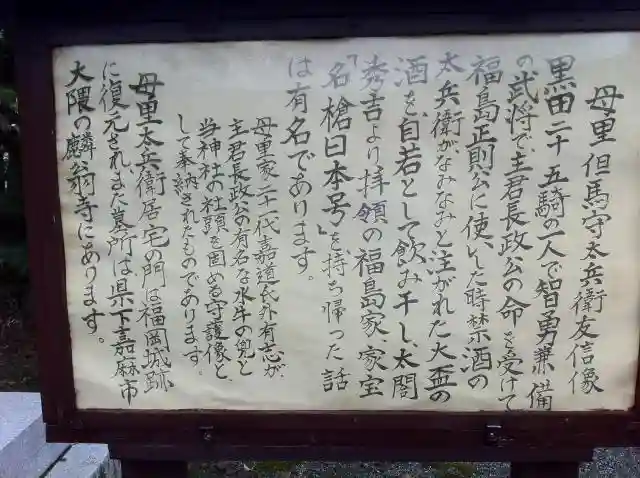 母里但馬守太兵衛友信像
黒田二十五騎の一人で智勇兼備
の武将で、主君長政公の命を受けて
福島正則公に使いした時禁酒の
太兵衛がなみなみと注がれた大盃の
酒を、自若として飲み干し、太閤
秀吉より拝領の福島家、家宝
「名槍日本号」を持ち帰った話
は有名であります。
母里家二十一代嘉道氏外有志が
主君長政公の有名な水牛の兜と、
当神社の社頭を固める守護像と
して奉納されたものであります。
母里太兵衛居宅の門は福岡城跡
に復元され、また墓所は県下嘉麻市
大隈の麟翁寺にあります。